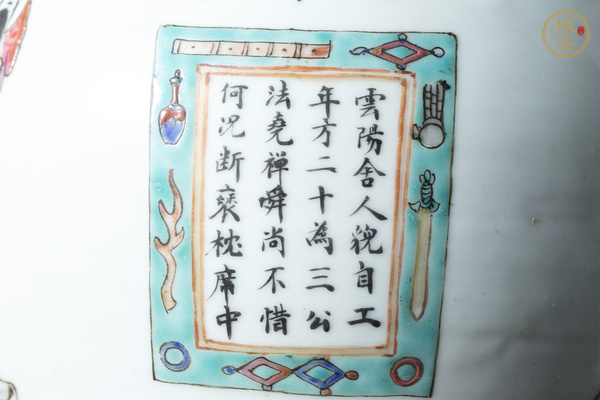 雲陽舍人貌自工
年方二十為三公
法堯禪舜尚不惜
何况断褎枕席中